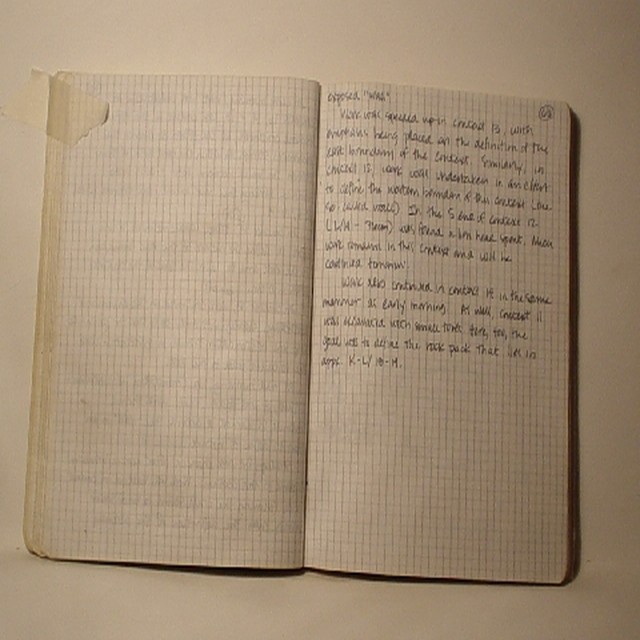 exposed "wall"
Work was speeded up in context 13, with
emphasis being placed on the definition of the
east boundary of the context. Similarly, in
context 12, work was undertaken in an effort
to define the western boundary of this context (the
so-called voids) In the S end of context 12
was found a
work remains in this context and will be
continued tomorrow.
Work also continued in context 15 in the same
manner as early morning. As well, context 11
was excavated with small tools here, too, the
goal was to define the rock pack that lies in
K-L/